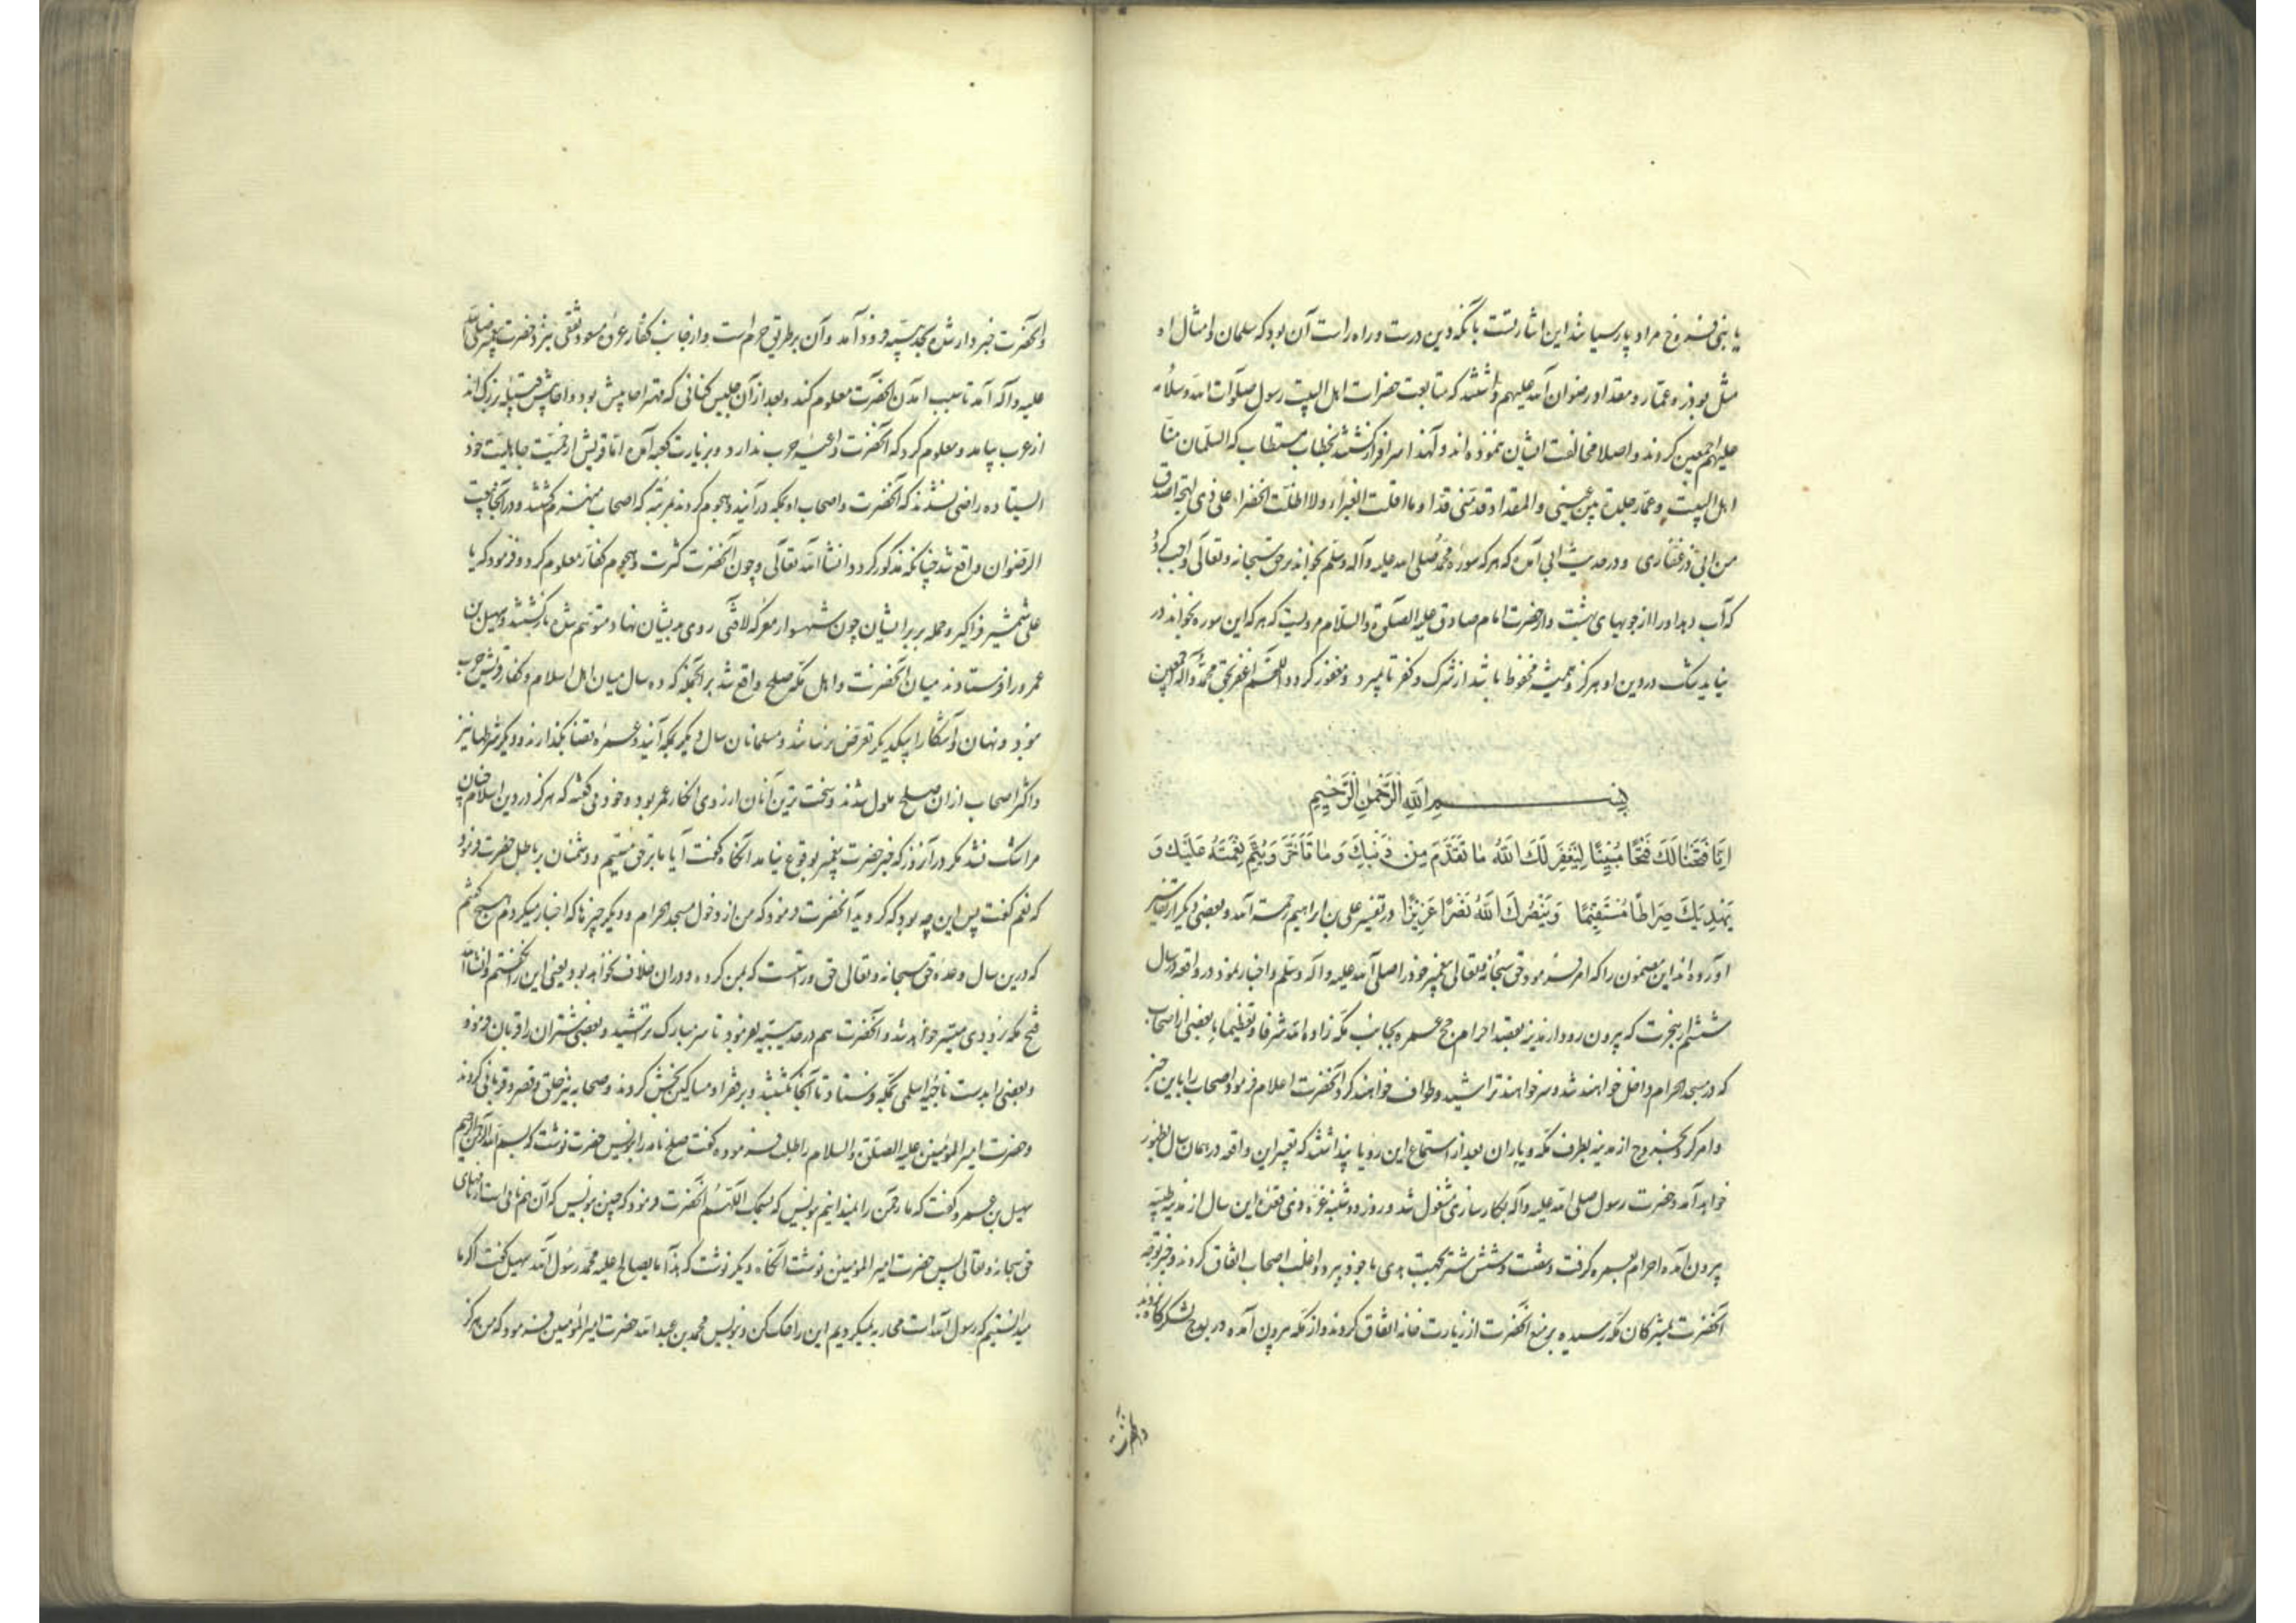 یا بنی فروخ مراد پارسیا شد این اشارتست بانکه دین درست و راه راست آن بود که سلمان و امثال او
مثل بوذر و عمار و مقداد رضوان الله علیهم داشتند که متابعت حضرات اهل البیت رسول صلوات الله و سلامه
علیهم اجمعین کردند و اصلا مخالفت ایشان ننموده اند و لهذا سرافراز کشتند بخطاب مستطاب که السلمان منا
اهل البیت و عمار جلدة بین عینی و المقداد قد منی قدا و ما اقلت الغبراء ولا اظلت الخضراء علی ذی لهجة اصدق
من ابی ذر غفاری و در حدیث ابی آمده که هر که سوره محمد صلی الله علیه و آله وسلم بخواند بر حق سبحانه و تعالی واجب کردد
که آب دهد او را از جویهای بهشت و از حضرت امام صادق علیه الصلوة والسلام مرویست که هر که این سوره بخواند در
نیاید شک در دین او هرکز و همیشه محفوظ باشد از شرک و کفر تا بمیرد و مغفور کردد اللهم اغفر بحق محمد و آله اجمعین
بسم الله الرحمن الرحیم
اِنَّا فَتَحْنَا لَكَ فَتْحًا مُبِينًا لِيَغْفِرَ لَكَ اللَّهُ مَا تَقَدَّمَ مِنْ ذَنْبِكَ وَ مَا تَأَخَّرَ وَيُتِمَّ نِعْمَتَهُ عَلَيْكَ وَ
يَهْدِيَكَ صِرَاطًا مُسْتَقِيمًا وَيَنْصُرَكَ اللَّهُ نَصْرًا عَزِيزًا در تفسیر علی بن ابراهیم رحمة الله و بعضی دیکر از تفاسیر
آورده اند این مضمون را که امر فرمود حق سبحانه و تعالی پیغمبر خود را صلی الله علیه و آله وسلم و اخبار نمود در واقعه در سال
ششم از هجرت که بیرون رود از مدینه بقصد احرام حج عمره بجانب مکه زاده الله شرفا و تعظیما با بعضی از اصحاب
که در مسجد الحرام داخل خواهند شد و سر خواهند تراشید و طواف خواهند کرد آنحضرت اعلام فرمود اصحاب را باین خبر
و امر کرد بخروج از مدینه بطرف مکه و یاران بعد از استماع این رویا پنداشتند که تعبیر این واقعه در همان سال بظهور
خواهد آمد و حضرت رسول صلی الله علیه و آله بکارسازی مشغول شد و روز دوشنبه غره ذی قعده این سال از مدینه طیبه
بیرون آمده احرام بعمره کرفت و شصت و شش شتر بجهت هدی با خود ببرد و اغلب اصحاب اتفاق کردند و خبر توجه
آنحضرت بمشرکان مکه رسیده بر منع آنحضرت از زیارت خانه اتفاق کردند و از مکه بیرون آمده در بلدح لشکرکاه زدند
و آنحضرت
و آنحضرت خبردار شده بحدیبیه فرود آمد و آن بر طریق حرم است و از جانب کفار عروه مسعود ثقفی نیز نزد حضرت پیغمبر صلی الله
علیه و آله آمد تا سبب آمدن آنحضرت معلوم کند و بعد از آن جلیس کنانی که مهتر احابیش بود و احابیش قبیله بزرک اند
از عرب بیامد و معلوم کرد که آنحضرت داعیه حرب ندارد و بزیارت کعبه آمده اما قریش از حمیت جاهلیت خود
ایستاده راضی نشدند که آنحضرت و اصحاب او بمکه درآیند و هجوم کردند بمرتبه که اصحاب منهزم کشتند و در آنجا بیعت
الرضوان واقع شد چنانکه مذکور کردد انشاالله تعالی و چون آنحضرت کثرت و هجوم کفار معلوم کرد و فرمود که یا
علی شمشیر فراکیر و حمله بر بر ایشان چون شهسوار معرکه لافتی روی بدیشان نهاد متوهم شده بازکشتند و سهیل بن
عمرو را فرستادند میان آنحضرت و اهل مکه صلح واقع شد بر آنجمله که ده سال میان اهل اسلام و کفار قریش حرب
نبود و نهان و آشکارا بیکدیکر تعرض نرسانند و مسلمانان سال دیکر بمکه آیند و عمره قضا بکذارند و دیکر شرطها نیز
و اکثر اصحاب از آن صلح ملول شدند و سخت ترین آنان از روی انکار عمر بود و خود می کفته که هرکز در دین اسلام چنان
مرا شک نشد مکر در آنروز که خبر حضرت پیغمبر بوقوع نیامد آنکاه کفت آیا ما بر حق نیستیم و دشمنان بر باطل حضرت فرمود
که نعم کفت پس این چه بود که کردید آنحضرت فرمود که من از دخول مسجد الحرام و دیکر چیزها که اخبار میکردم هیچ نکفتم
که درین سال وعده حق سبحانه و تعالی حق و راست است که بمن کرده و در آن خلاف نخواهد بود یعنی این را نکفتم و انشاالله
فتح مکه بزودی میسر خواهد شد و آنحضرت هم در حدیبیه بفرمود تا سر مبارک تراشید و بعضی شتران را قربان فرمود
و بعضی را بدست ناجیه اسلمی بمکه فرستاد تا آنجا بکشتند و بر فقرا و مساکین بخش کردند و صحابه نیز حلق و قصر و قربانی کردند
و حضرت امیر المؤمنین علیه الصلوة والسلام را طلب فرموده کفت صلح نامه را بنویس حضرت نوشت که بسم الله الرحمن الرحیم
سهیل بن عمرو کفت که ما رحمن را نمیدانیم بنویس که بسمک اللهم آنحضرت فرمود که چنین بنویس که آن هم نامی است از نامهای
حق سبحانه و تعالی پس حضرت امیر المومنین نوشت آنکاه دیکر نوشت که هذا ما یصالح علیه محمد رسول الله سهیل کفت اکر ما
میدانستیم که رسول الله است محاربه نمیکردیم این را حک کن و بنویس محمد بن عبدالله حضرت امیر المؤمنین فرمود که من هرکز